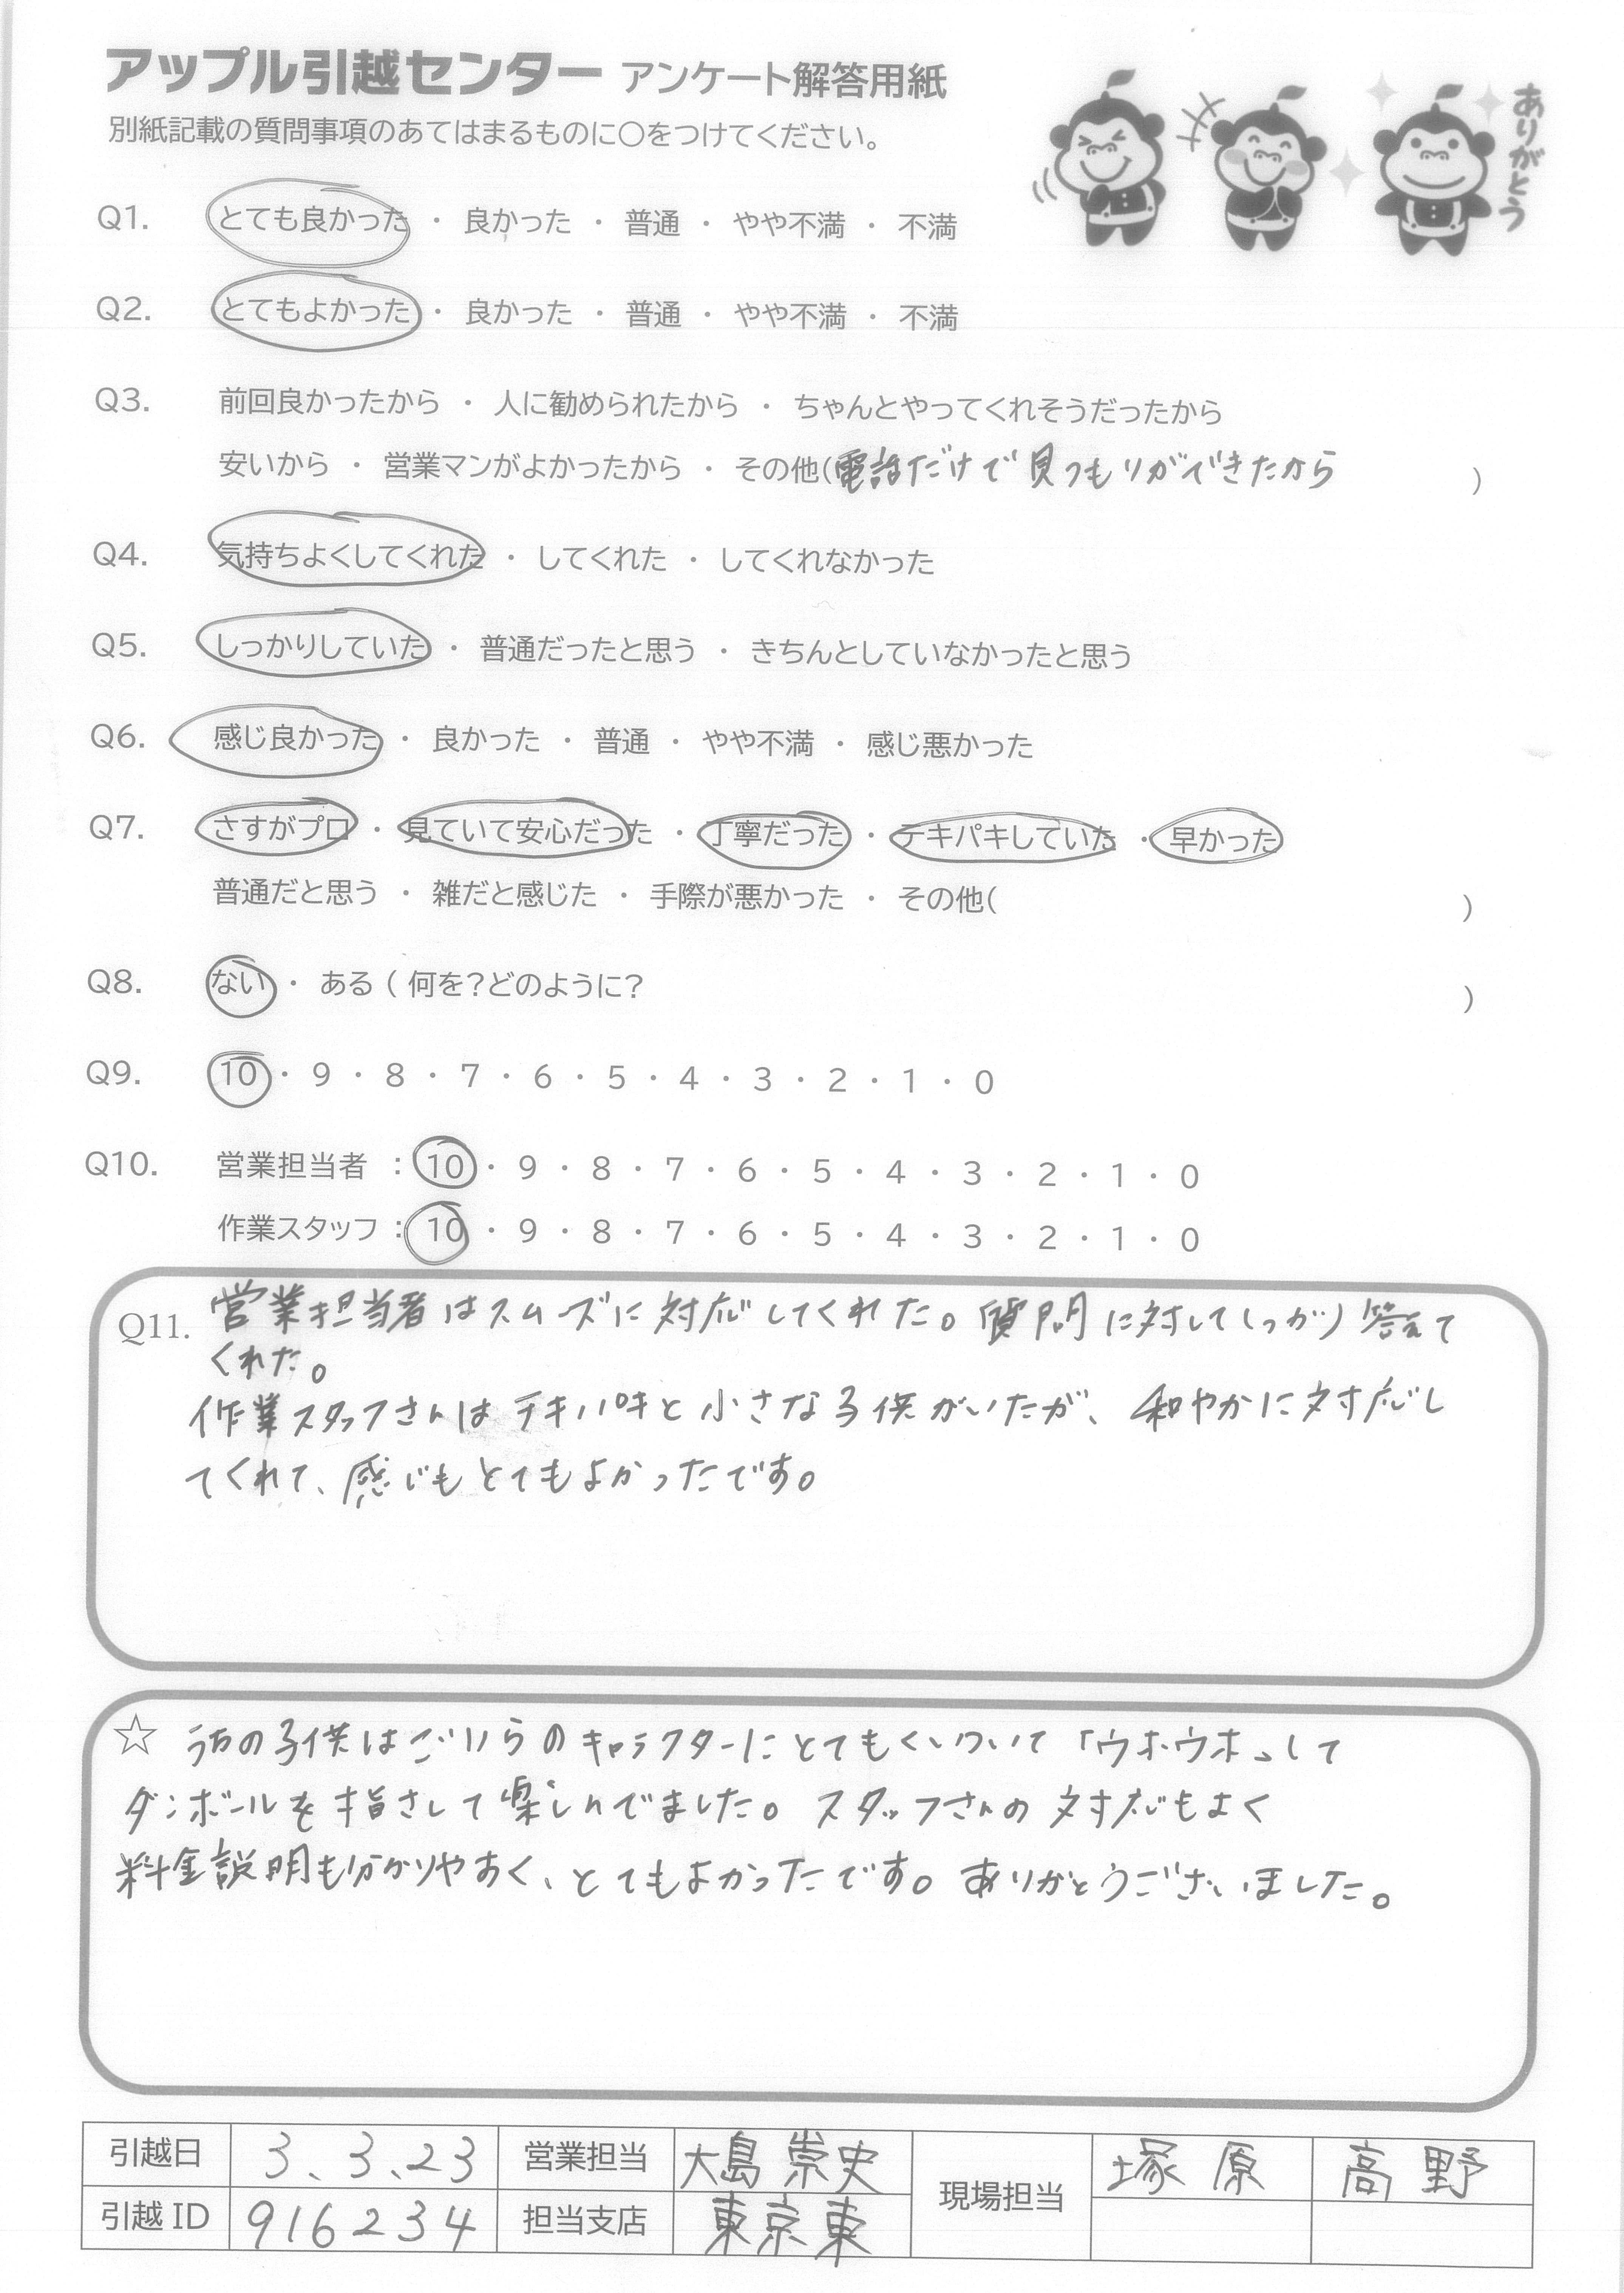 アップル引越センター アンケート解答用紙
別紙記載の質問事項のあてはまるものに〇をつけてください。
ありがとう
Q1. とても良かった ・ 良かった ・ 普通 ・ やや不満 ・ 不満
Q2. とてもよかった ・ 良かった ・ 普通 ・ やや不満 ・ 不満
Q3. 前回良かったから ・ 人に勧められたから ・ ちゃんとやってくれそうだったから
安いから ・ 営業マンがよかったから ・ その他(電話だけで見つもりができたから )
Q4. 気持ちよくしてくれた ・ してくれた ・ してくれなかった
Q5. しっかりしていた ・ 普通だったと思う ・ きちんとしていなかったと思う
Q6. 感じ良かった ・ 良かった ・ 普通 ・ やや不満 ・ 感じ悪かった
Q7. さすがプロ ・ 見ていて安心だった ・ 丁寧だった ・ テキパキしていた ・ 早かった
普通だと思う ・ 雑だと感じた ・ 手際が悪かった ・ その他( )
Q8. ない ・ ある ( 何を?どのように? )
Q9. 10 ・ 9 ・ 8 ・ 7 ・ 6 ・ 5 ・ 4 ・ 3 ・ 2 ・ 1 ・ 0
Q10. 営業担当者 : 10 ・ 9 ・ 8 ・ 7 ・ 6 ・ 5 ・ 4 ・ 3 ・ 2 ・ 1 ・ 0
作業スタッフ : 10 ・ 9 ・ 8 ・ 7 ・ 6 ・ 5 ・ 4 ・ 3 ・ 2 ・ 1 ・ 0
Q11. 営業担当者はスムーズに対応してくれた。質問に対してしっかり答えて
くれた。
作業スタッフさんはテキパキと小さな子供がいたが、和やかに対応し
てくれて、感じもとてもよかったです。
☆ うちの子供はごりらのキャラクターにとてもくいついて「ウホウホ」して
ダンボールを指さして楽しんでました。スタッフさんの対応もよく
料金説明も分かりやすく、とてもよかったです。ありがとうございました。
引越日 3、3、23 営業担当 大島崇史 現場担当 塚原 高野
引越ID 916234 担当支店 東京東